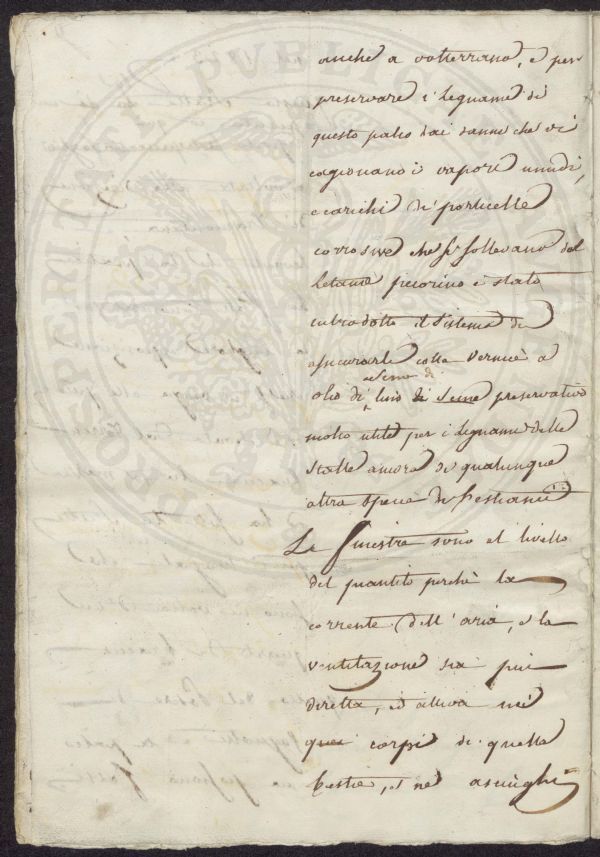 anche a volterrano, e per
preservare i Legnami di
questo palco dai danni che vi
cagionano i vapori umidi,
e carichi di porticelle
corrosive che si sollevano dal
Letame pecorino è stato
introdotto il Sistema di
assicurarli colla Vernice a
Seme di
olio di lino di Seme preservativo
molto utile per i Legnami delle
Stalle ancora di qualunque
altra specie di Bestiami
Le finestre sono al livello
del quantito perchè la
corrente dell'aria, e la
ventilazione sia più
diretta, ed attiva nè
quei corpi di quelle
bestie, e ne asciughi